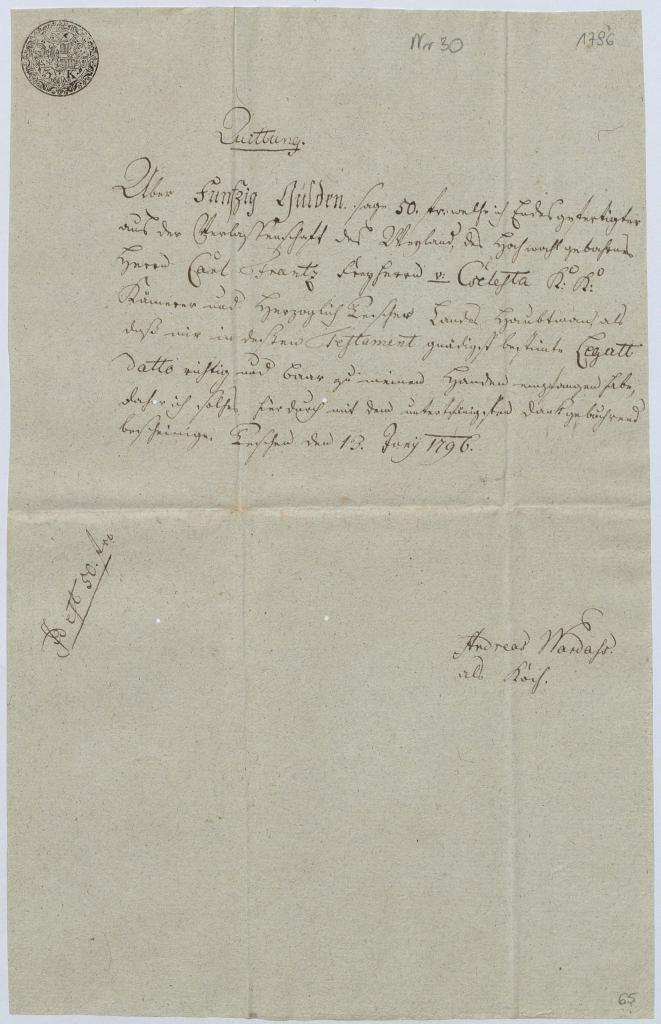 Nr 30
1796
3 K
Quittung.
Über Funfzig Gulden. sage 50. fr. welche ich Endesgefertigter
aus der Verlassenschaft des Weyland, des Hochwohlgebohrnen
Herrn Carl Frantz Freyherrn v: Cselesta K: K:
Kämerer und Herzoglich Teschner Landes Haubtmans als
daß mir in dessen Testament gnädigst bestimte Legatt
datto richtig und baar zu meinen Handen empfangen habe,
daher ich solches hierdurch mit dem unterthänigsten Dank gebührend
bescheinige. Teschen den 13. Juny 1796.
ist 50. fr.
Andreas
als Koch.
65